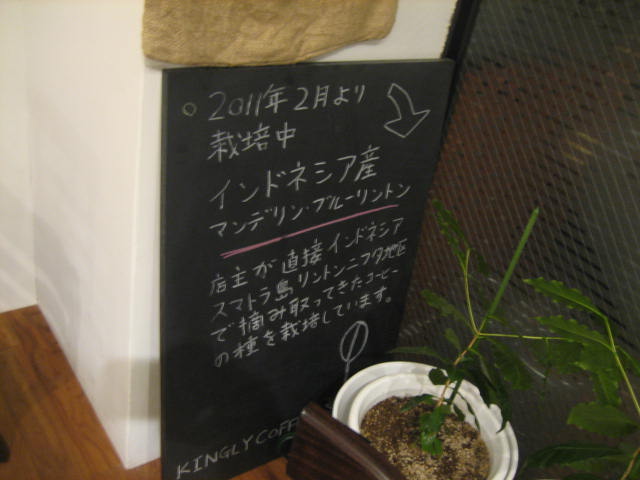 2011年2月より
栽培中
インドネシア産
マンデリン・ブルーリントン
店主が直接インドネシア
スマトラ島リントンニフタ地区
で摘み取ってきたコーヒー
の種を栽培しています。
KINGLY COFF